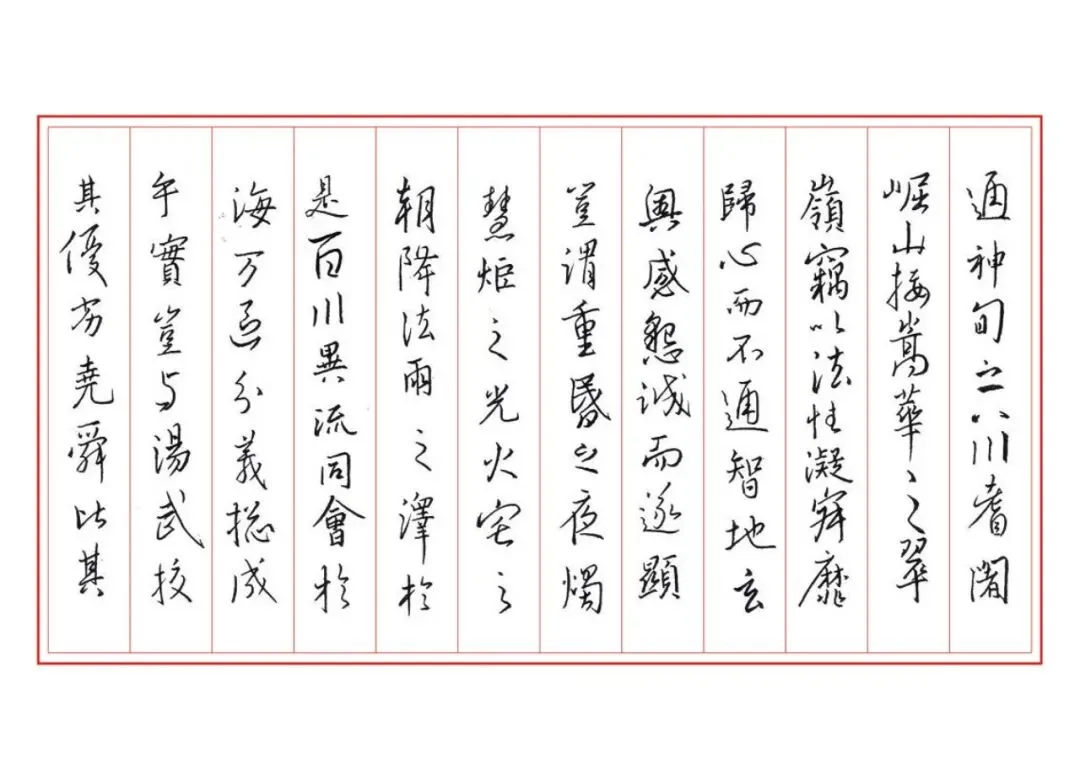 通神甸之八川耆闍
崛山接嵩華之翠
嶺竊以法性凝寂靡
歸心而不通智地玄
奧感懇誠而遂顯
豈謂重昏之夜燭
慧炬之光火宅之
朝降法雨之澤於
是百川異流同會於
海万區分義揔成
乎實豈与湯武校
其優劣堯舜比其